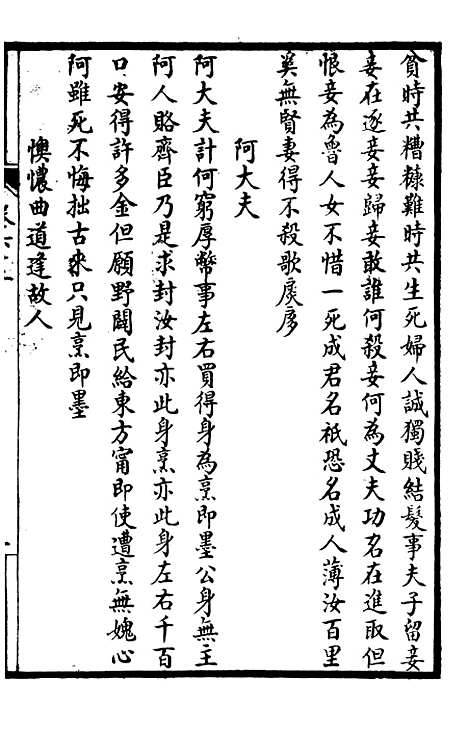 貧時共糟糠難時共生死婦人誠獨賤結髮事夫子留妾
妾在逐妾妾歸妾敢誰何殺妾何為丈夫功名在進取但
恨妾為魯人女不惜一死成君名祇恐名成人薄汝百里
奚無賢妻得不殺歌扊扅
阿大夫
阿大夫計何窮厚幣事左右買得身為烹即墨公身無主
阿人賂齊臣乃是求封汝封亦此身烹亦此身左右千百
口安得許多金但願野闢民給東方甯即使遭烹無媿心
阿雖死不悔拙古來只見烹即墨
懊憹曲道逢故人